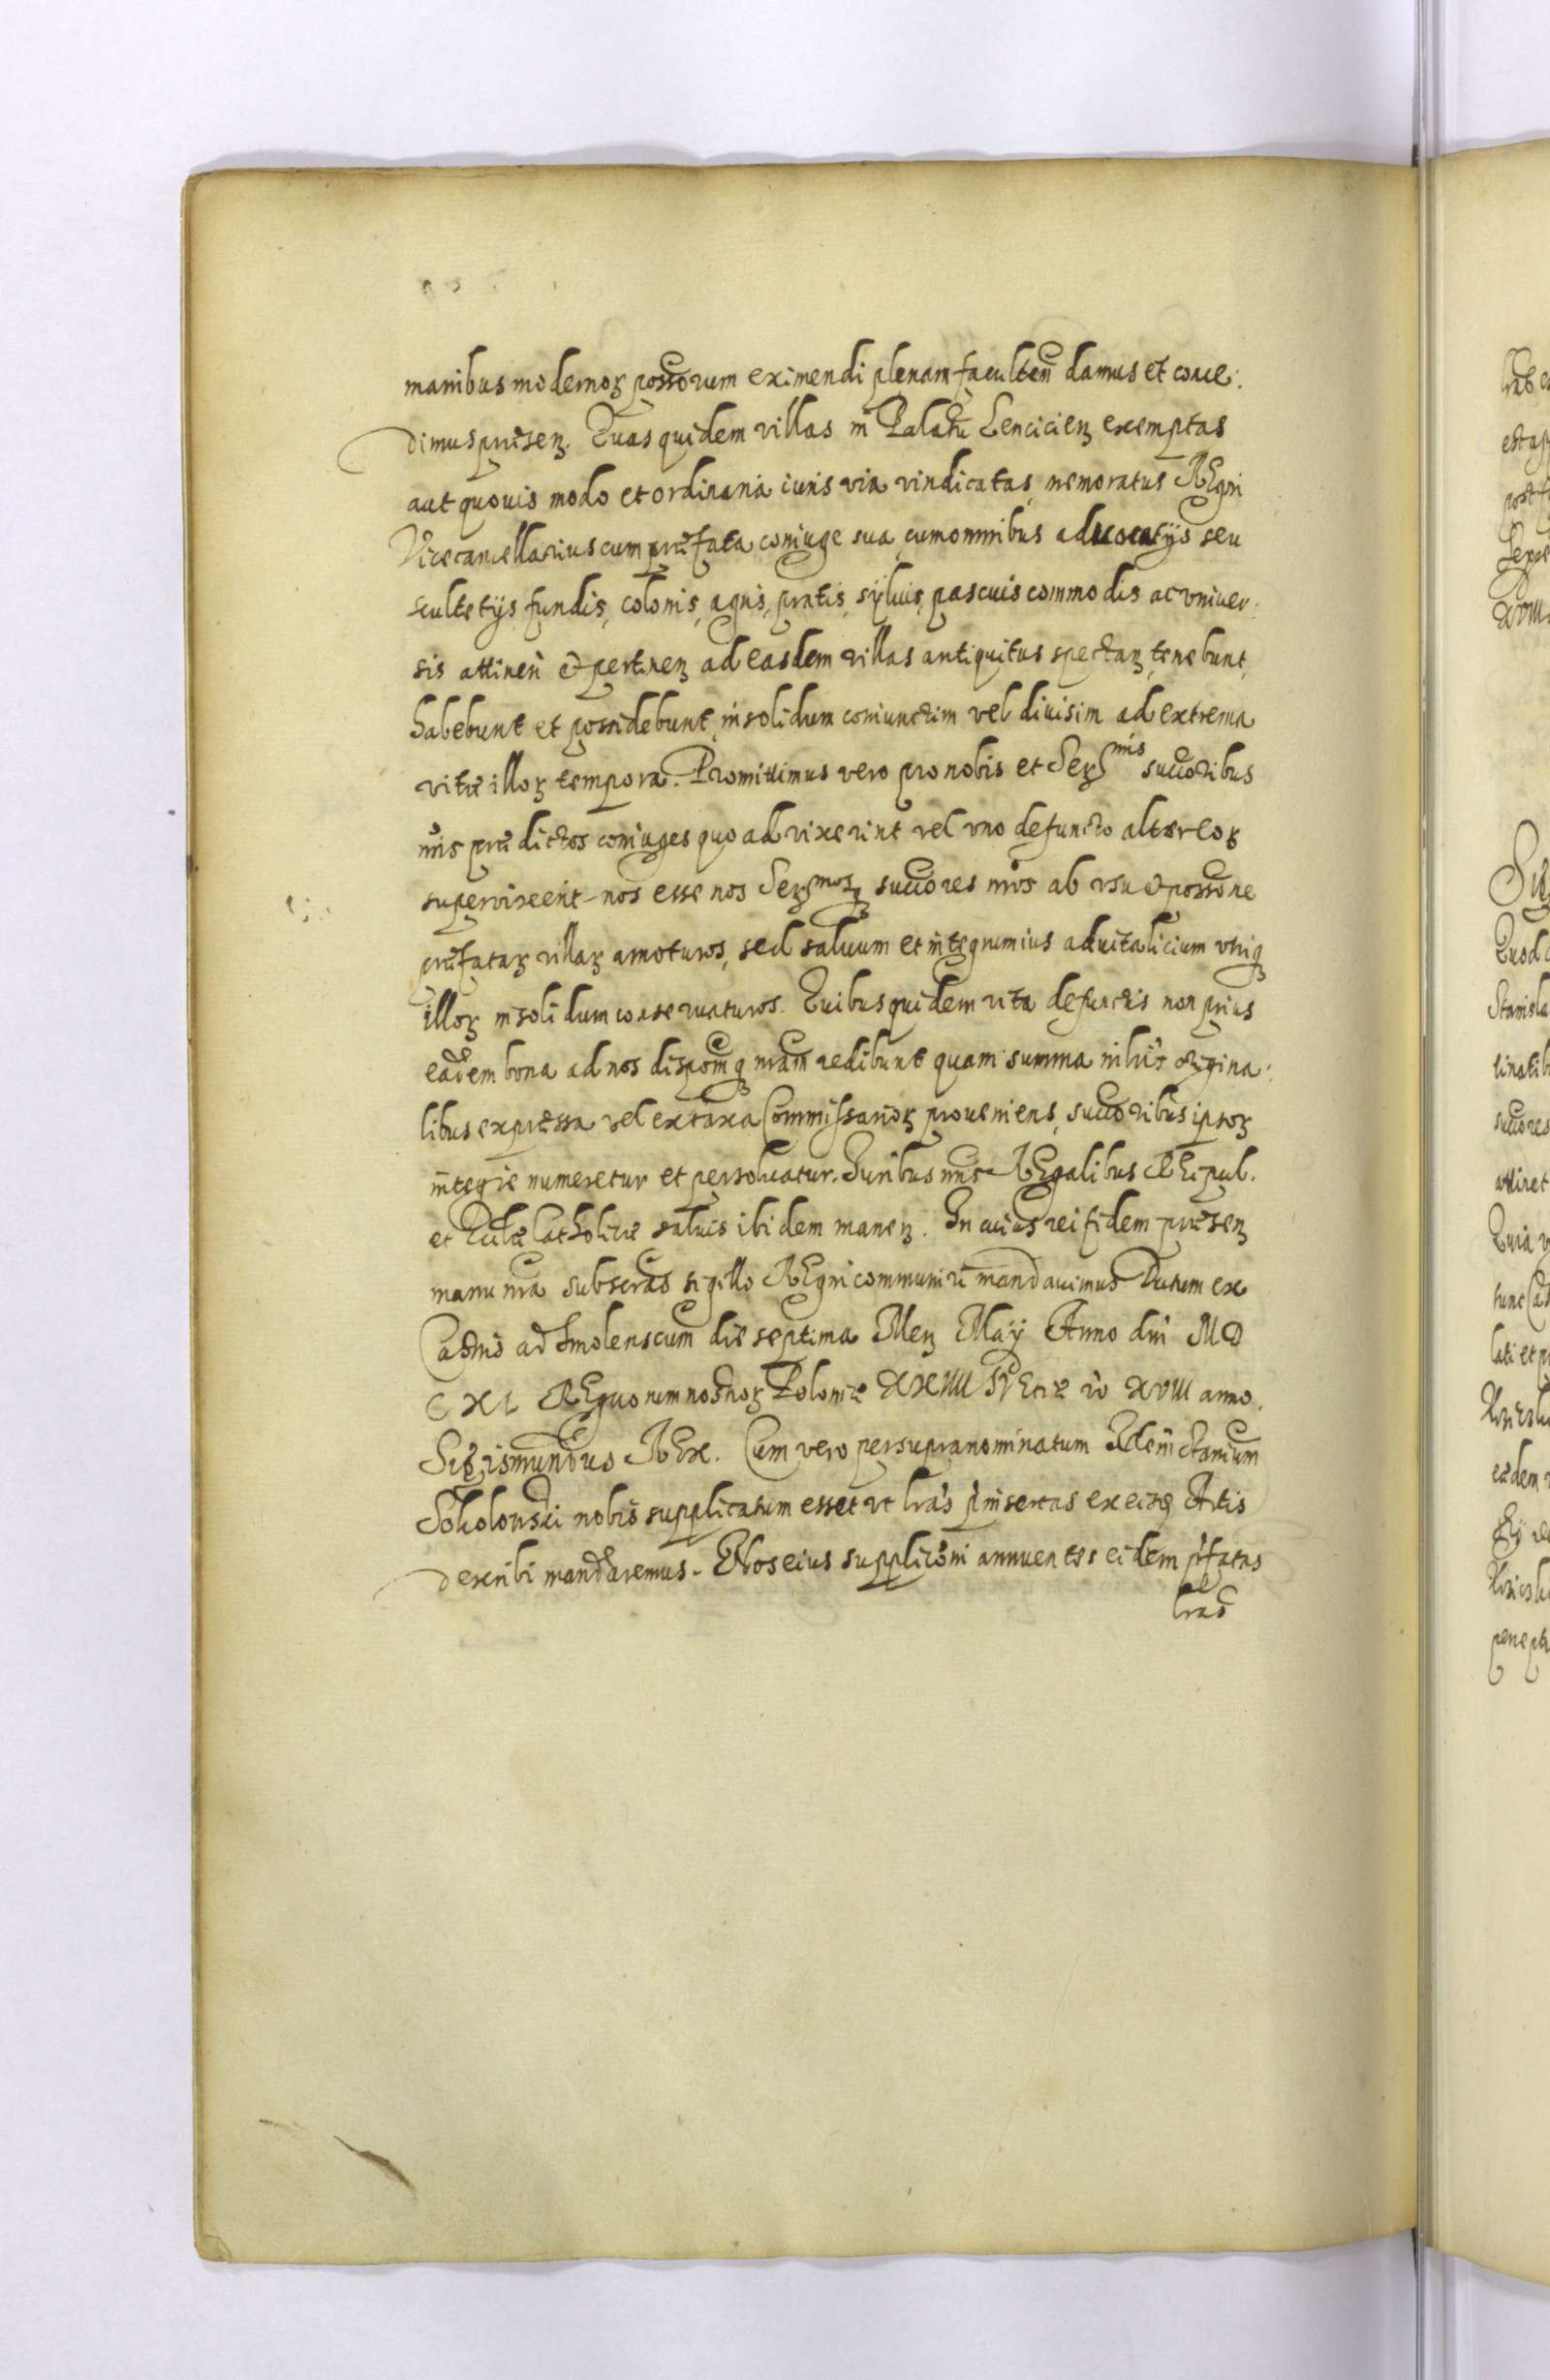 manibus modernoꝝ possorum eximendi plenam facultem damus et conce:
dimus præsenꝫ. Quas quidem villas in Palatu Lencicienꝫ exemptas
aut quouis modo et ordinaria iuris via vindicatas, memoratus REgni
Vicecancellarius cum præfata coniuge sua, cum omnibus aduocatijs seu
scultetijs, fundis, colonis, agris, pratis, syluis, pascuis commodis ac vniuer:
sis attinen̄ et pertinenꝫ ad easdem villas antiquitus spectanꝫ, tenebunt,
habebunt et possidebunt, insolidum coniunctim vel diuisim ad extrema
vitæ illoꝝ tempora. Promittimus vero pro nobis et Serꝫmis succoribus
nris prædictos coniuges quo ad vixerint vel vno defuncto alter eoꝝ
supervixerit, nos esse nos Serꝫmosꝗ succores nros ab vsu et possone
præfataꝝ villaꝝ amoturos, sed saluum et integrum ius aduitalicium vtriꝗ
illoꝝ insolidum conseruaturos. Quibus quidem vita defunctis non prius
eadem bona ad nos disponemꝗ nram redibunt quam summa in lris origina:
libus expressa vel ex taxa Commissarioꝝ proueniens, succoribus ipsoꝝ
integre numeretur et persoluatur. Iuribus nris REgalibus REipub.
et Eccliæ Catholicæ saluis ibidem manenꝫ. In cuius rei fidem præsenꝫ
manu nra subscras sigillo REgni communiri mandauimus Datum ex
Castris ad Smolenscum die septima Menꝫ Maÿ Anno dni MD
CXI REgnorum nostroꝝ Poloniæ XXIIII SVEtiæ vo XVIII anno.
Sigismundus REx. Cum vero per supranominatum
Sokolowski nobis supplicatum esset vt lras pinsertas ex eisdꝫ Actis
describi mandaremus. Nos eius supplicōni annuentes eidem pfatas
lras